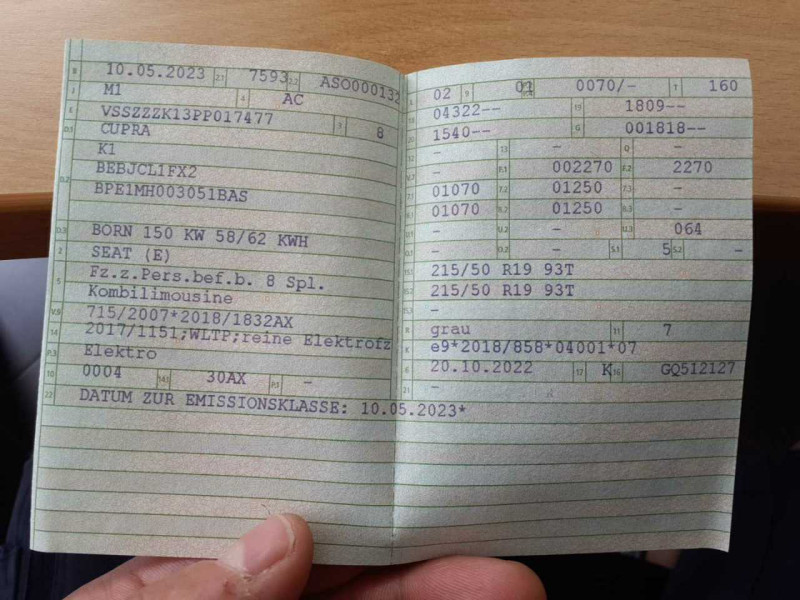 B 10.05.2023 2.1 7593 2.2 ASO000132
J M1 4 AC
E VSSZZZK13PP017477 3 8
D.1 CUPRA
K1
D.2 BEBJCL1FX2
BPE1MH003051BAS
D.3 BORN 150 KW 58/62 KWH
2 SEAT (E)
5 Fz.z.Pers.bef.b. 8 Spl.
Kombilimousine
V.9 715/2007*2018/1832AX
14 2017/1151;WLTP;reine Elektrofz
P.3 Elektro
10 0004 14.1 30AX P.1 -
22 DATUM ZUR EMISSIONSKLASSE: 10.05.2023*
L 02 9 01 P.2 0070/- T 160
18 04322-- 19 1809--
20 1540-- G 001818--
- 13 - Q -
V.7 - F.1 002270 F.2 2270
7.1 01070 7.2 01250 7.3 -
8.1 01070 8.2 01250 8.3 -
U.1 - U.2 - U.3 064
O.1 - O.2 - S.1 5 S.2 -
15.1 215/50 R19 93T
15.2 215/50 R19 93T
15.3 -
R grau 11 7
K e9*2018/858*04001*07
6 20.10.2022 17 K 16 GQ512127
21 -